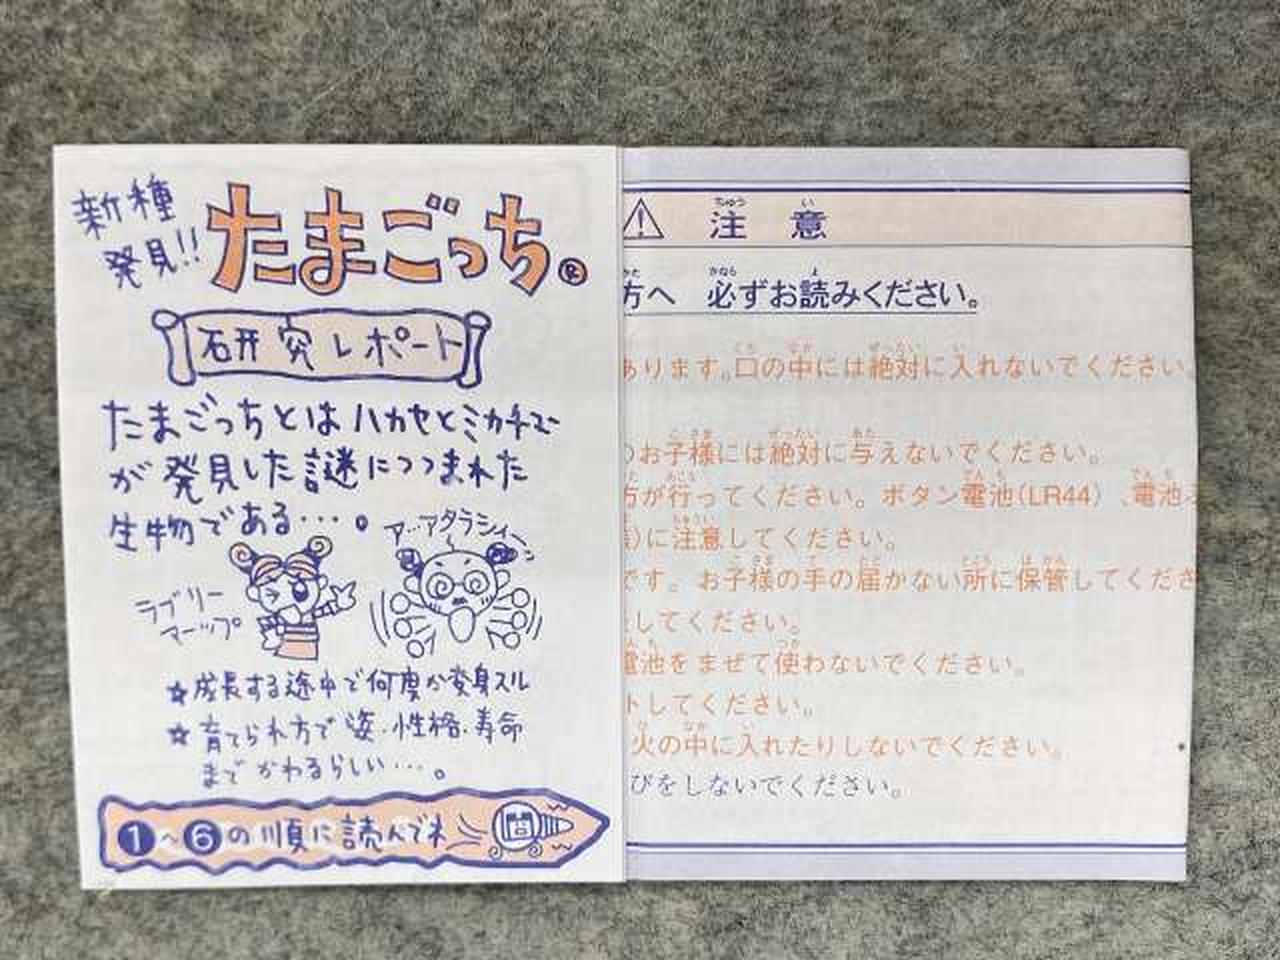 新種
発見!!
たまごっち®
研究レポート
たまごっちとはハカセとミカチュー
が発見した謎につつまれた
生物である・・・。
ア…アタラシィー
ラブリー
マーップ
☆成長する途中で何度か変身スル
☆育てられ方で姿・性格・寿命
までかわるらしい・・・。
1〜6の順に読んでネ
注意
ちゅう い
方へ 必ずお読みください。
かた かなら よ
あります。口の中には絶対に入れないでください。
お子様には絶対に与えないでください。
方が行ってください。ボタン電池(LR44)、電池
)に注意してください。
です。お子様の手の届かない所に保管してくださ
してください。
電池をまぜて使わないでください。
トしてください。
火の中に入れたりしないでください。
びをしないでください。